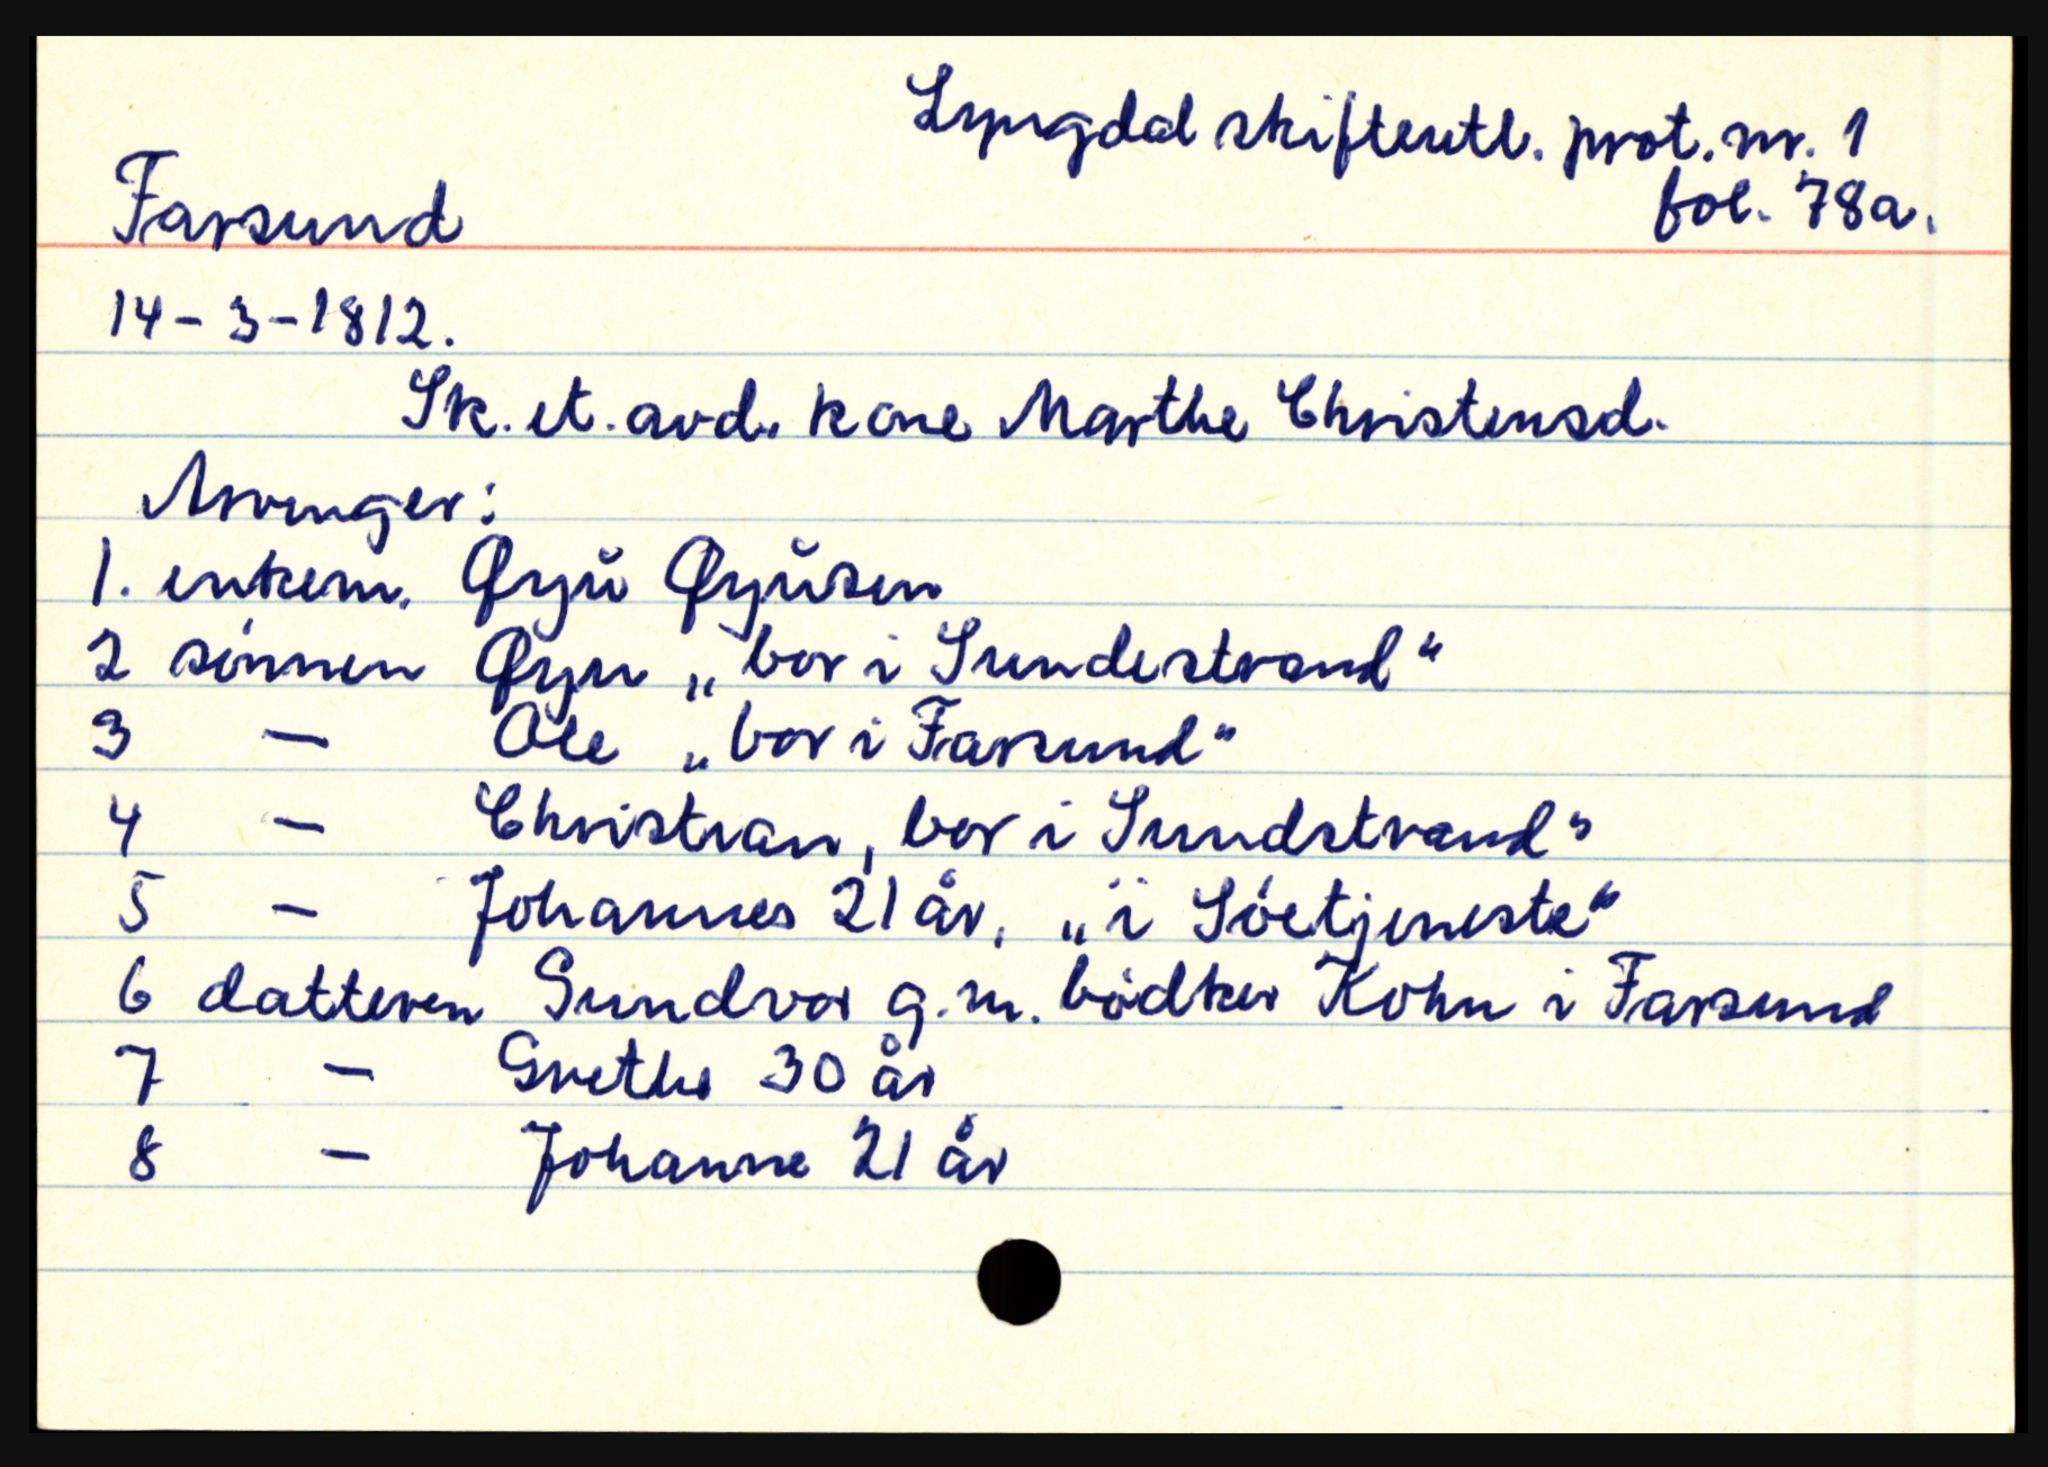 Lyngdal skifteutl. prot. nr. 1
Farsund fol. 78a.
14-3-1812.
Sk. et. avd. kone Marthe Christensd.
Arvinger:
1. enkem. Øyŭ Øyŭsen
2 sønnen Øyu „bor i Sundestrand"
3 — Ole „bor i Farsund"
4 — Christian, bor i Sundstrand"
5 — Johannes 21 år, „i Søetjeneste"
6 datteren Gundvor g.m. bødker Kohn i Farsund
7 — Grethe 30 år
8 — Johanne 21 år